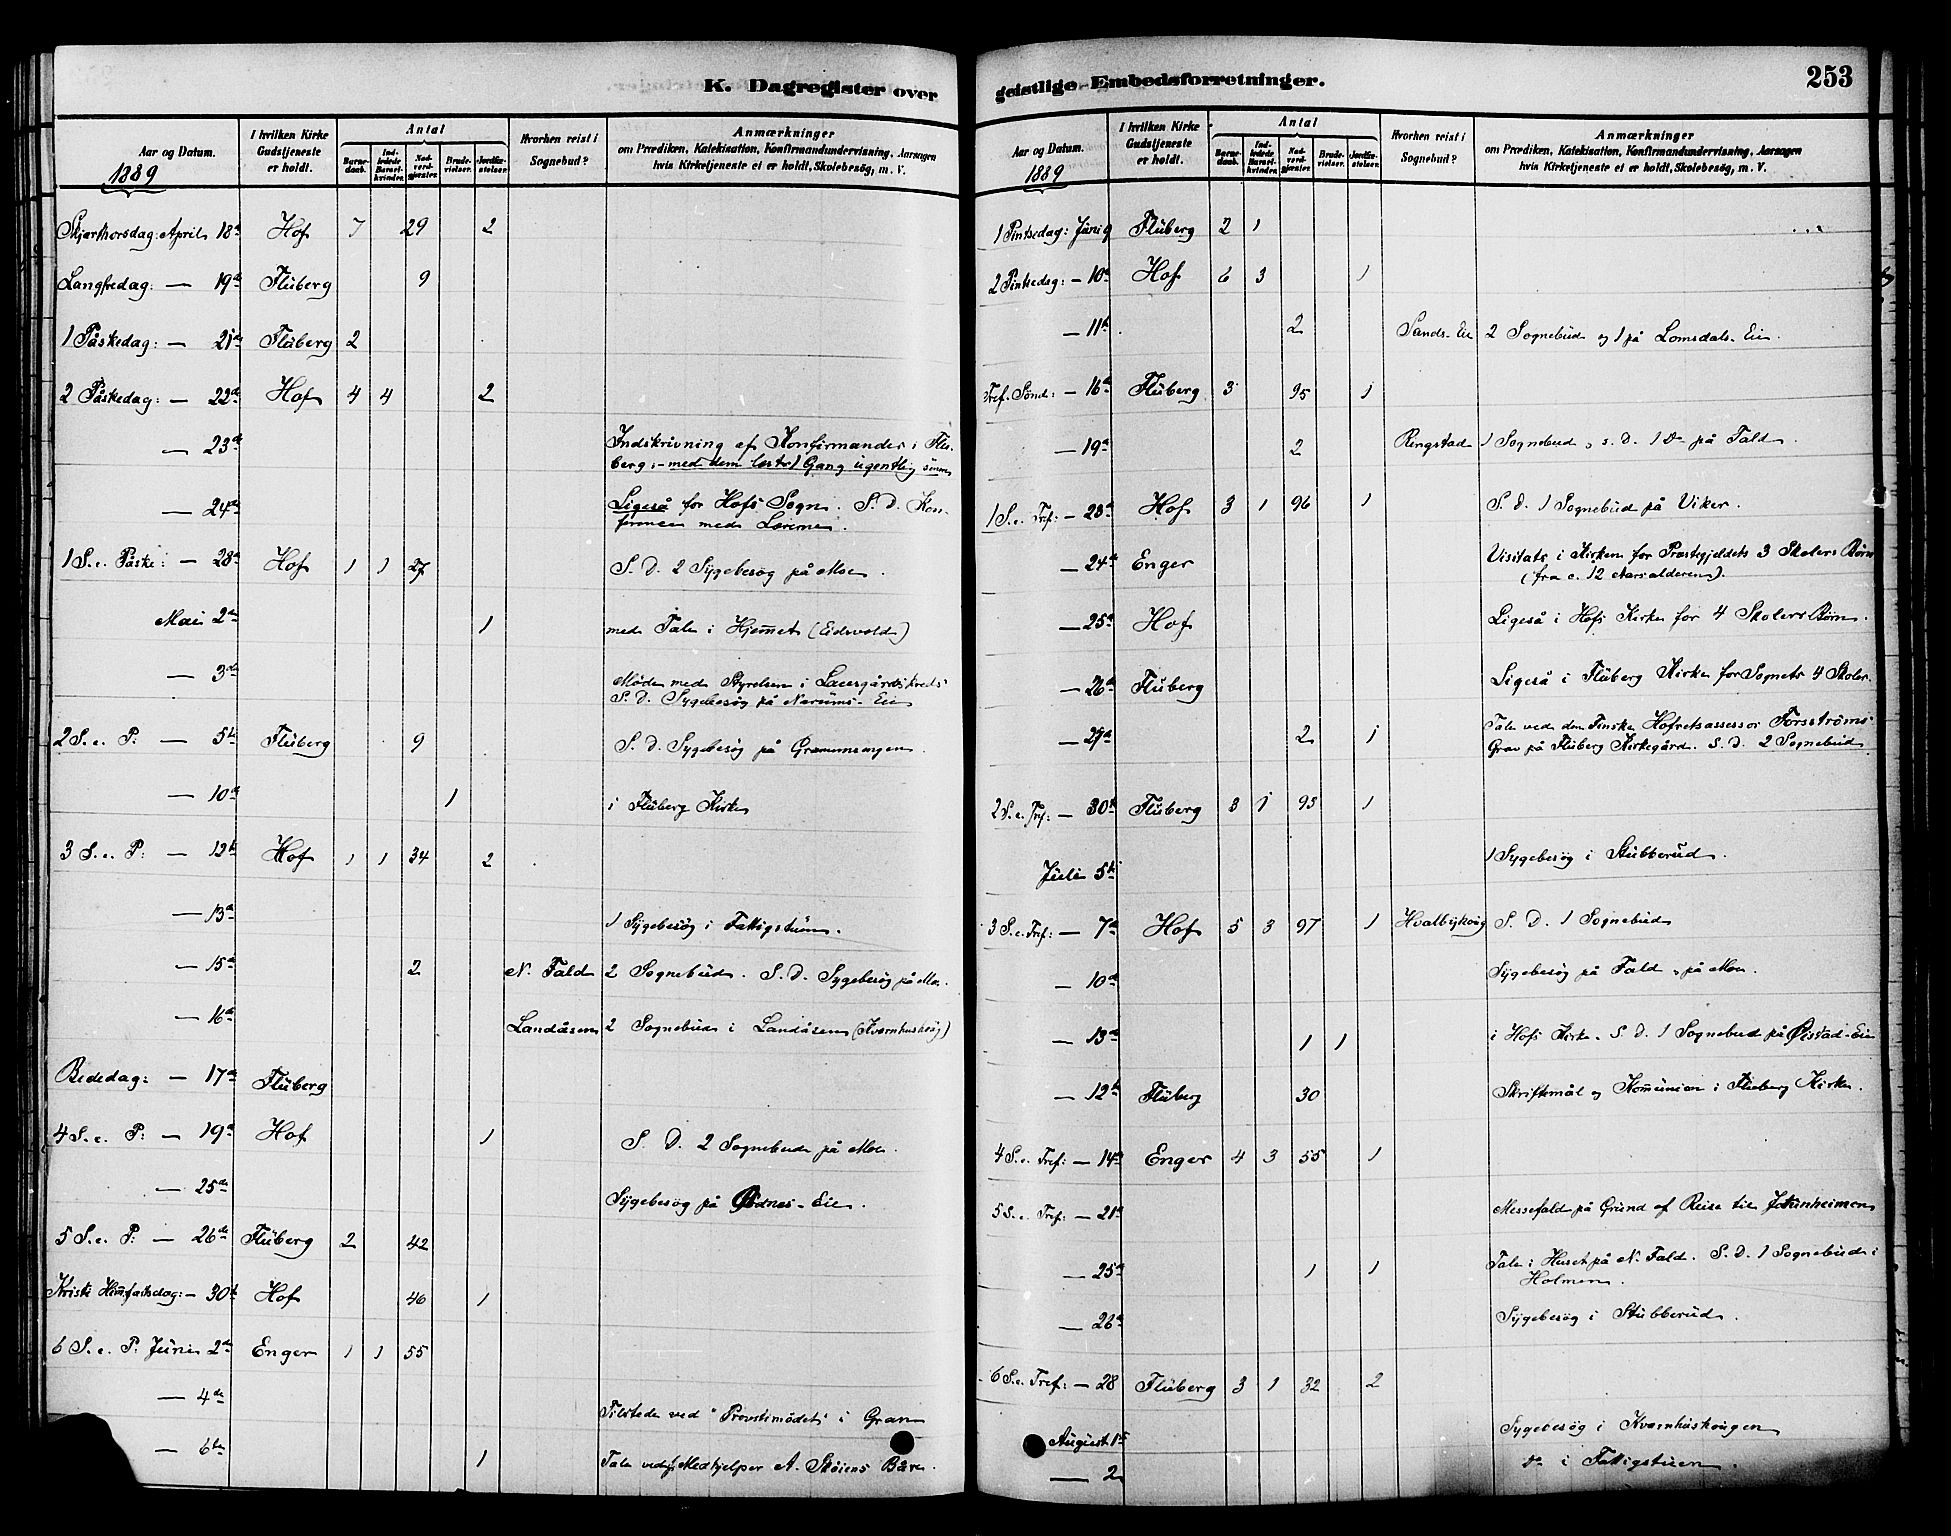 K. Dagregister over
Aar og Datum.
1889
I hvilken Kirke Gudstjeneste er holdt.
Antal
Barnedaab.
Indledede Barselkvinder.
Nadverdgjæster.
Brudevielser.
Jordfæstelser.
Hvorhen reist i Sognebud?
Anmærkninger
om Prædiken, Katekisation, Konfirmandundervisning, Aarsagen
hvis Kirketjeneste ei er holdt, Skolebesøg, m. V.
Skjærthorsdag: April 18de Hof 7 29 2
Langfredag: — 19de Fluberg 9
1 Påskedag: — 21de Fluberg 2
2 Påskedag: — 22de Hof 4 4 2
— 23de Indskrivning af Konfirmander i Flu-
berg; — med dem læste 1 Gang ugentlig
— 24de Ligeså for Hofs Sogn. S. D. Kon-
ference med Lærerne.
1 S. e. Påske: — 28de Hof 1 1 27 S. D. 2 Sygebesøg på Moe.
Mai 2den 1 med Tale i Hjemmet (Eidsvold)
— 3de Møde med Styrelsen i
S. D. Sygebesøg på Narums-Eie
2 S. e. P. — 5te Fluberg 9 S. D. Sygebesøg på
— 10de 1 i Fluberg Kirke
3 S. e. P: — 12te Hof 1 1 34 2
— 13de 1 Sygebesøg i Fattigstuen.
— 15de 2 N. Fald 2 Sognebud. S. D. Sygebesøg på Moe.
— 16de Landåsen 2 Sognebud i Landåsen
Bededag: — 17de Fluberg
4 S. e. P: — 19de Hof 1 S. D. 2 Sognebud på Moe.
— 25de Sygebesøg på Odnes-Eie.
5 S. e. P: — 26de Fluberg 2 42
Kristi Himmelfartsdag: — 30te Hof 46 1
6 S. e. P. Juni 2den Enger 1 1 55
— 4de Tilstede ved "Provstimødet" i Gran
— 6te 1 Tale ved Medhjelper A. Skøiens Båre.
geistlige Embedsforretninger.
253
Aar og Datum.
1889
I hvilken Kirke Gudstjeneste er holdt.
Antal
Barnedaab.
Indledede Barselkvinder.
Nadverdgjæster.
Brudevielser.
Jordfæstelser.
Hvorhen reist i Sognebud?
Anmærkninger
om Prædiken, Katekisation, Konfirmandundervisning, Aarsagen
hvis Kirketjeneste ei er holdt, Skolebesøg, m. V.
1 Pintsedag: Juni 9 Fluberg 2 1
2 Pintsedag: — 10de Hof 6 3 1
— 11te 2 Sands-Eie 2 Sognebud og 1 på Lomsdals-Eie.
Tref. Sønd: — 16de Fluberg 3 95 1
— 19de 2 Ringstad 1 Sognebud, s. D. 1 Do på Fald.
1 S. e. Tref: — 23de Hof 3 1 96 1 S. D. 1 Sognebud på Viker.
— 24de Enger Visitats i Kirken for Præstegjeldets 3 Skolers Børn
(fra c. 12 Aarsalderen).
— 25de Hof Ligeså i Hofs Kirke for 4 Skolers Børn.
— 26de Fluberg Ligeså i Fluberg Kirke for Sognets 4 Skoler.
— 27de 2 1 Tale ved den Finske Hofretsassessor Forsströms
Grav på Fluberg Kirkegård. S. D. 2 Sognebud
2 S. e. Tref: — 30te Fluberg 3 1 93 1
Juli 5te 1 Sygebesøg i Stubberud.
3 S. e. Tref: — 7de Hof 5 3 97 1 S. D. 1 Sognebud
— 10de Sygebesøg på Fald, på Moe.
— 13de 1 1 i Hofs Kirke. S. D. 1 Sognebud på Øistad-Eie
— 12te Fluberg 30 Skriftemål og Kommunion i Fluberg Kirke.
4 S. e. Tref: — 14de Enger 4 3 55 1
5 S. e. Tref: — 21de Messefald på Grund af Reise til Jotunheimen
— 25de 1 1 Tale i Huset på N. Fald. S. D. 1 Sognebud i
Holmen.
— 26de Sygebesøg i Stubberud.
6 S. e. Tref: — 28 Fluberg 3 1 32 2
August 1ste Sygebesøg i Kvernhuskougen
— 2 do i Fattigstuen.